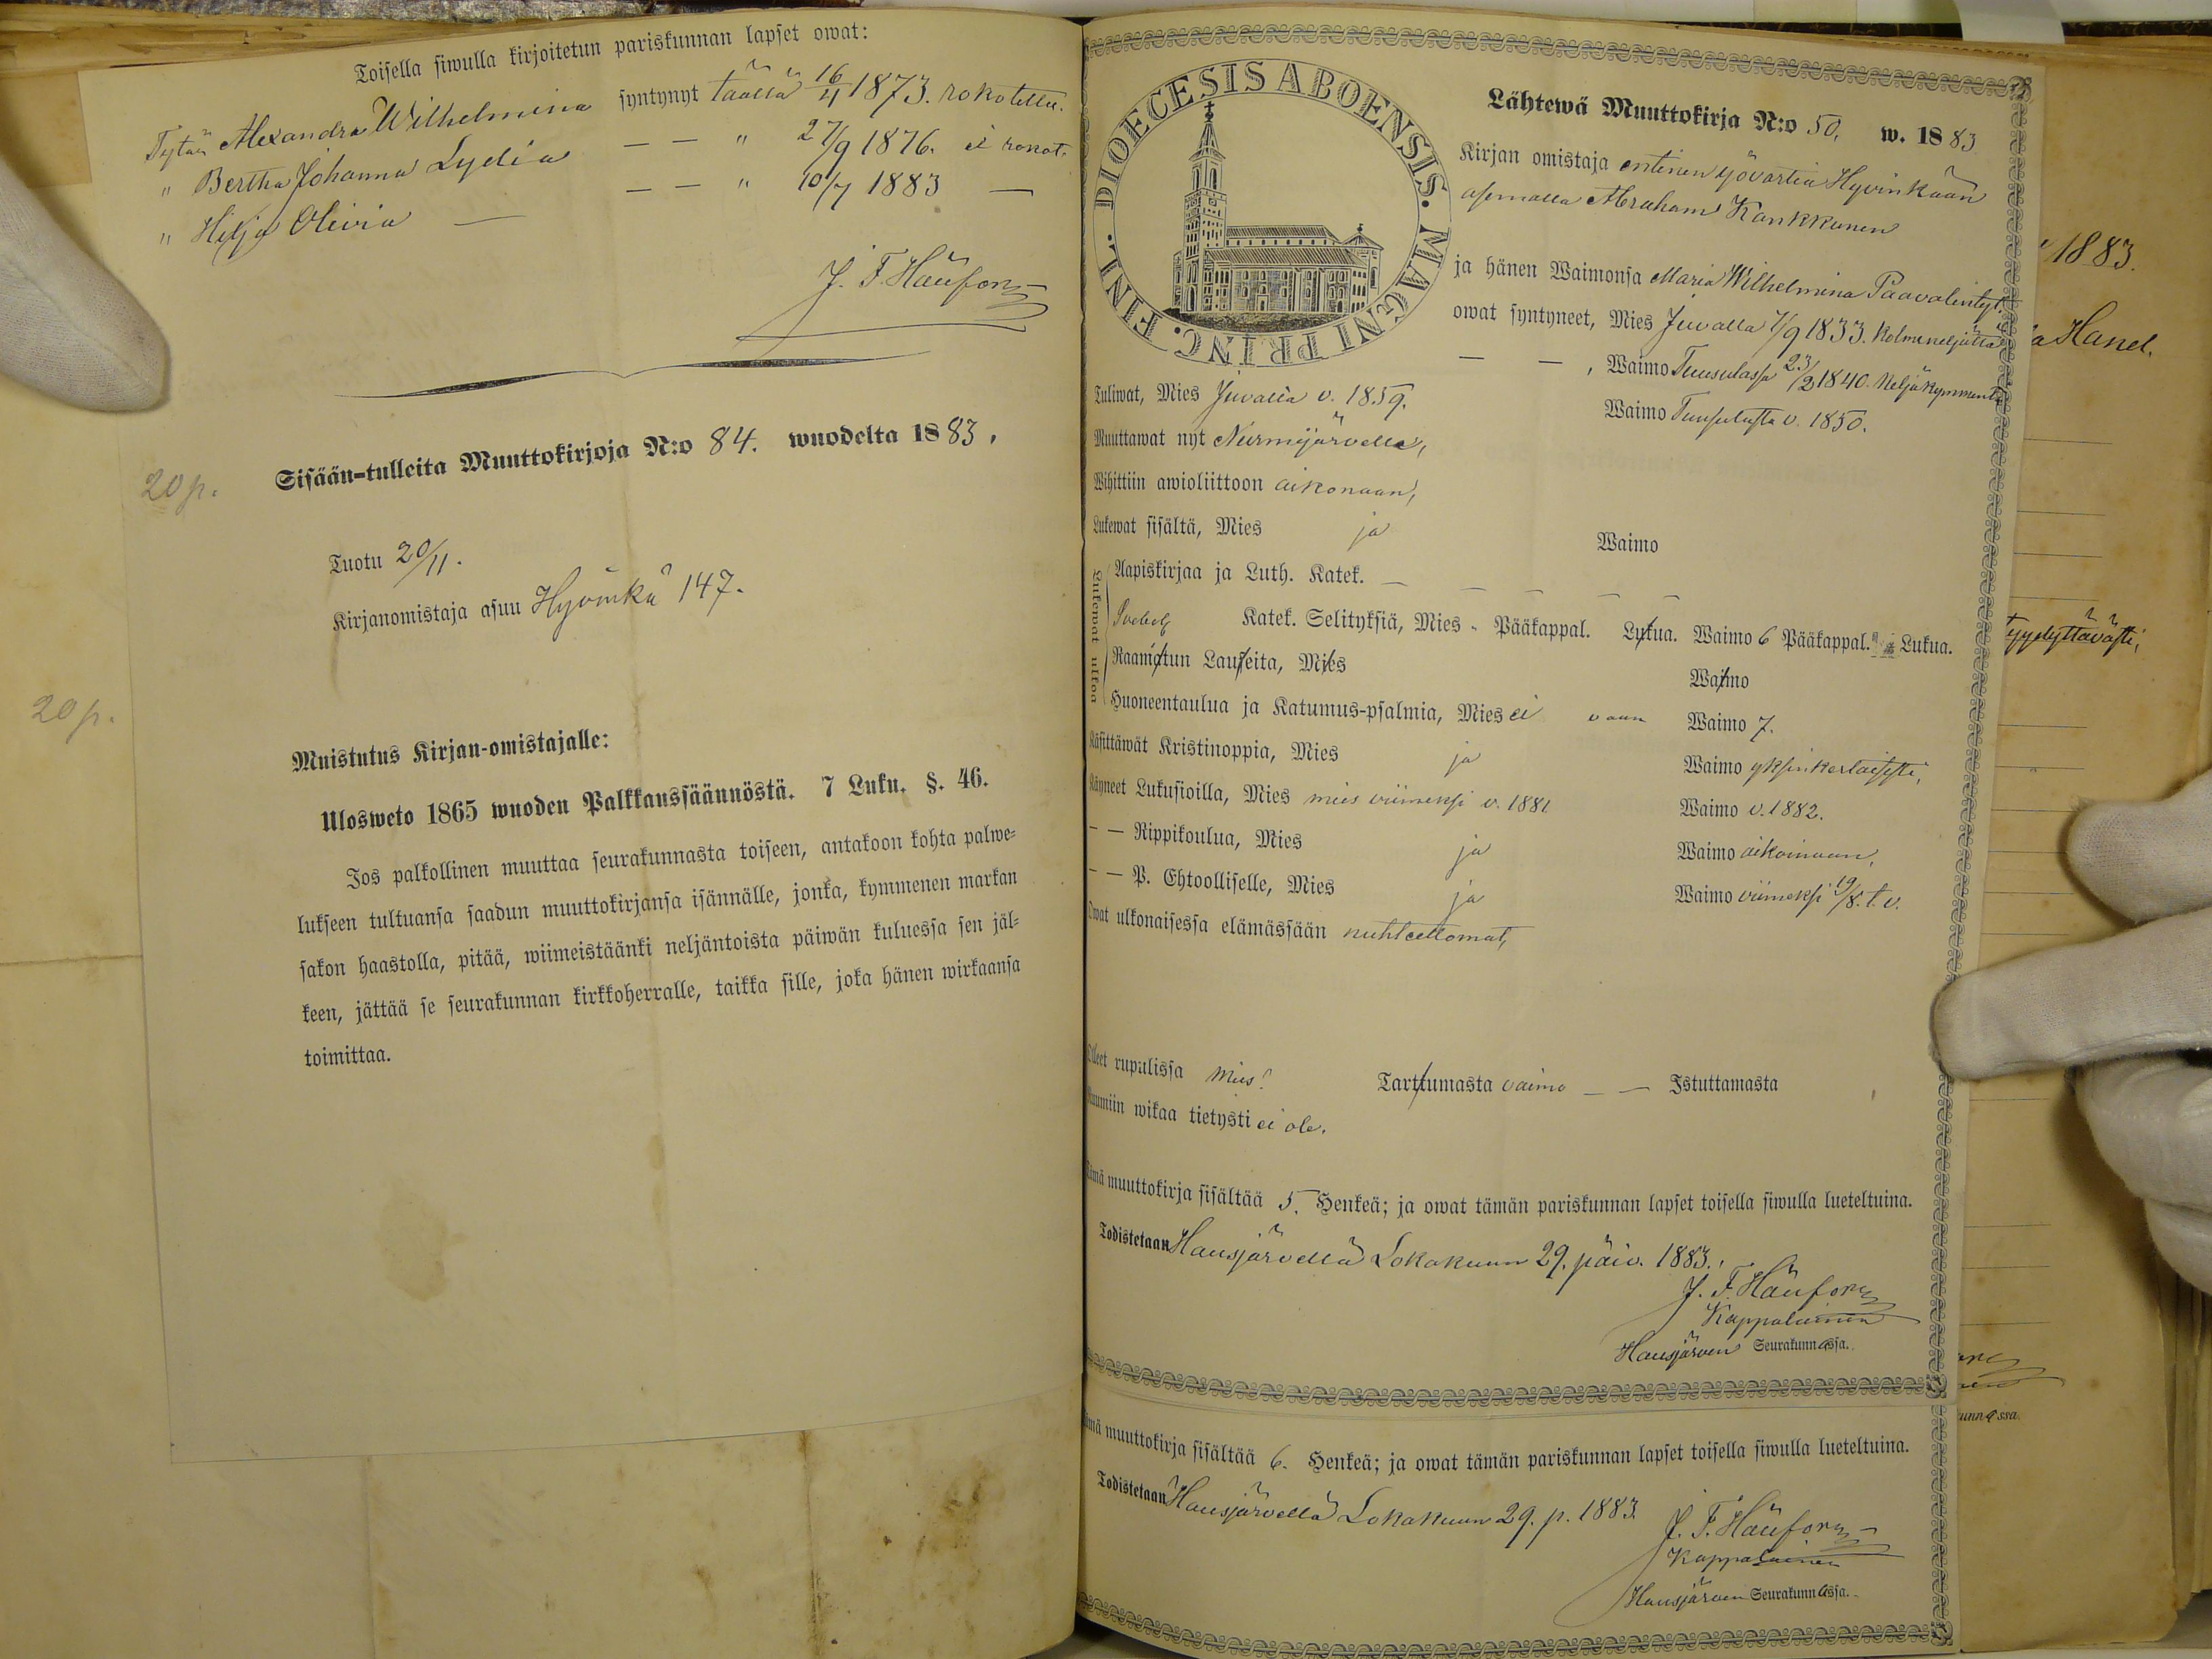 Toisella siwulla kirjoitetun pariskunnan lapset owat:
Tytär Alexandra Wilhelmina syntynyt täällä 16/4 1873. rokotettu.
" Bertha Johanna Lydia — — " 27/9 1876. ei rokot.
" Hilja Olivia — — — " 10/7 1883 —
J. F. Häufors
20 p.
Sisään-tulleita Muuttokirjoja N:o 84. wuodelta 1883,
Tuotu 20/11.
Kirjanomistaja asuu Hyvinkä 147.
20 p.
Muistutus Kirjan-omistajalle:
Ulosweto 1865 wuoden Palkkaussäännöstä. 7 Luku. §. 46.
Jos palkollinen muuttaa seurakunnasta toiseen, antakoon kohta palwe=
lukseen tultuansa saadun muuttokirjansa isännälle, jonka, kymmenen markan
sakon haastolla, pitää, wiimeistäänki neljäntoista päiwän kuluessa sen jäl=
keen, jättää se seurakunnan kirkkoherralle, taikka sille, joka hänen wirkaansa
toimittaa.
DIOECESIS ABOENSIS. MAGNI PRINC. FINL.
Lähtewä Muuttokirja N:o 50, w. 1883
Kirjan omistaja entinen yövartia Hyvinkään
asemalla Abraham Kankkunen
ja hänen Waimonsa Maria Wilhelmina Paavalintyt.
owat syntyneet, Mies Juvalla 7/9 1833. kolmeneljättä
— — , Waimo Tuusulassa 23/2 1840. Neljäkymmentä
Tuliwat, Mies Juvalla v. 1859. Waimo Tuusulasta v. 1850.
Muuttawat nyt Nurmijärvelle,
Wihittiin awioliittoon aikonaan,
Lukewat sisältä, Mies ja Waimo
Lukewat ulkoa
Aapiskirjaa ja Luth. Katek. — — — —
Svebel. Katek. Selityksiä, Mies " Pääkappal. Lukua. Waimo 6 Pääkappal. Lukua.
Raamatun Lauseita, Mies Waimo
Huoneentaulua ja Katumus-psalmia, Mies ei vaan Waimo 7.
Käsittäwät Kristinoppia, Mies ja Waimo yksinkertaisesti,
Käyneet Lukusioilla, Mies mies viimeksi v. 1881 Waimo v. 1882.
— — Rippikoulua, Mies ja Waimo aikoinaan,
— — P. Ehtoolliselle, Mies ja Waimo viimeksi 19/8. t. v.
Owat ulkonaisessa elämässään nuhteettomat,
Olleet rupulissa mies! Tarttumasta vaimo — — Istuttamasta
Ruumiin wikaa tietysti ei ole.
Tämä muuttokirja sisältää 5. Henkeä; ja owat tämän pariskunnan lapset toisella siwulla lueteltuina.
Todistetaan Hausjärvellä Lokakuun 29. päiv. 1883.
J. F. Häufors
Kappalainen
Hausjärven Seurakunnassa.
Tämä muuttokirja sisältää 6. Henkeä; ja owat tämän pariskunnan lapset toisella siwulla lueteltuina.
Todistetaan Hausjärvellä Lokakuun 29. p. 1883.
J. F. Häufors
Kappalainen
Hausjärven Seurakunnassa.
1883.
a Hanel.
tyydyttävästi,
unnassa.